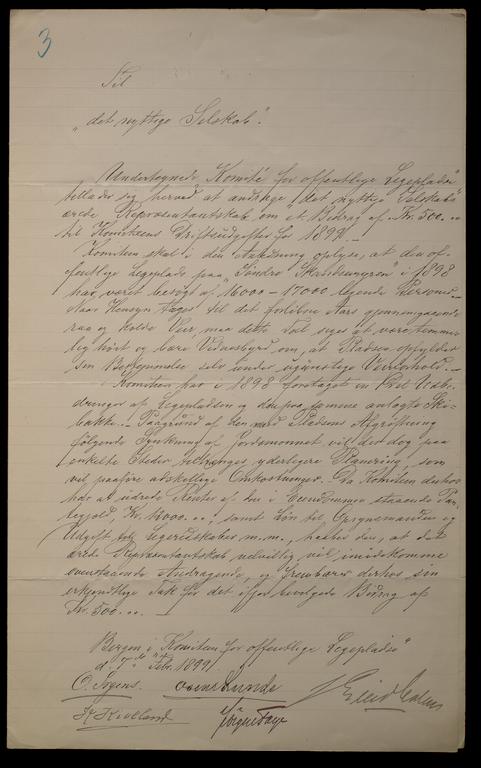 3
Til
"det nyttige Selskab".
Undertegnede "Komité for offentlige Legepladse"
tillader sig herved at andrage "det nyttige Selskabs"
ærede Repræsentantskab om et Bidrag af Kr. 500.00
til Komiteens Driftsudgifter for 1899. —
Komiteen skal i den Anledning oplyse, at den of-
fentlige Legeplads paa Søndre Skridsmyren i 1898
har været besøgt af 16000 – 17000 legende Personer. —
Naar Hensyn tages til det forløbne Aars gjennemgaaende
raa og kolde Veir, maa dette Tal siges at være temme-
lig høit og bære Vidnesbyrd om, at Pladsen opfylder
sin Bestemmelse selv under ugunstige Veirforhold. —
Komiteen har i 1898 foretaget en Del Udbe-
dringer af Legepladsen og den paa samme anlagte Ski-
bakke. — Paagrund af den med Pladsens Afgrøftning
følgende Synkning af Jordsmonnet vil der dog paa
enkelte Steder tiltrænges yderligere Planering, som
vil paaføre adskillige Omkostninger. Da Komiteen derhos
har at udrede Renter af den i Eiendommen staaende Pan-
tegjæld, Kr. 12000.00, samt Løn til Opsynsmanden og
Udgift til Legeredskaber m.m., haaber den, at det
ærede Repræsentantskab velvillig vil imødekomme
ovenstaaende Andragende, og frembærer derhos sin
erkjendtlige Tak for det ifjor bevilgede Bidrag af
Kr. 500.00. —
Bergen i "Komiteen for offentlige Legepladse"
d. 7de Febr. 1899.
O. Irgens.
Kr Kielland
Jørgen Faye